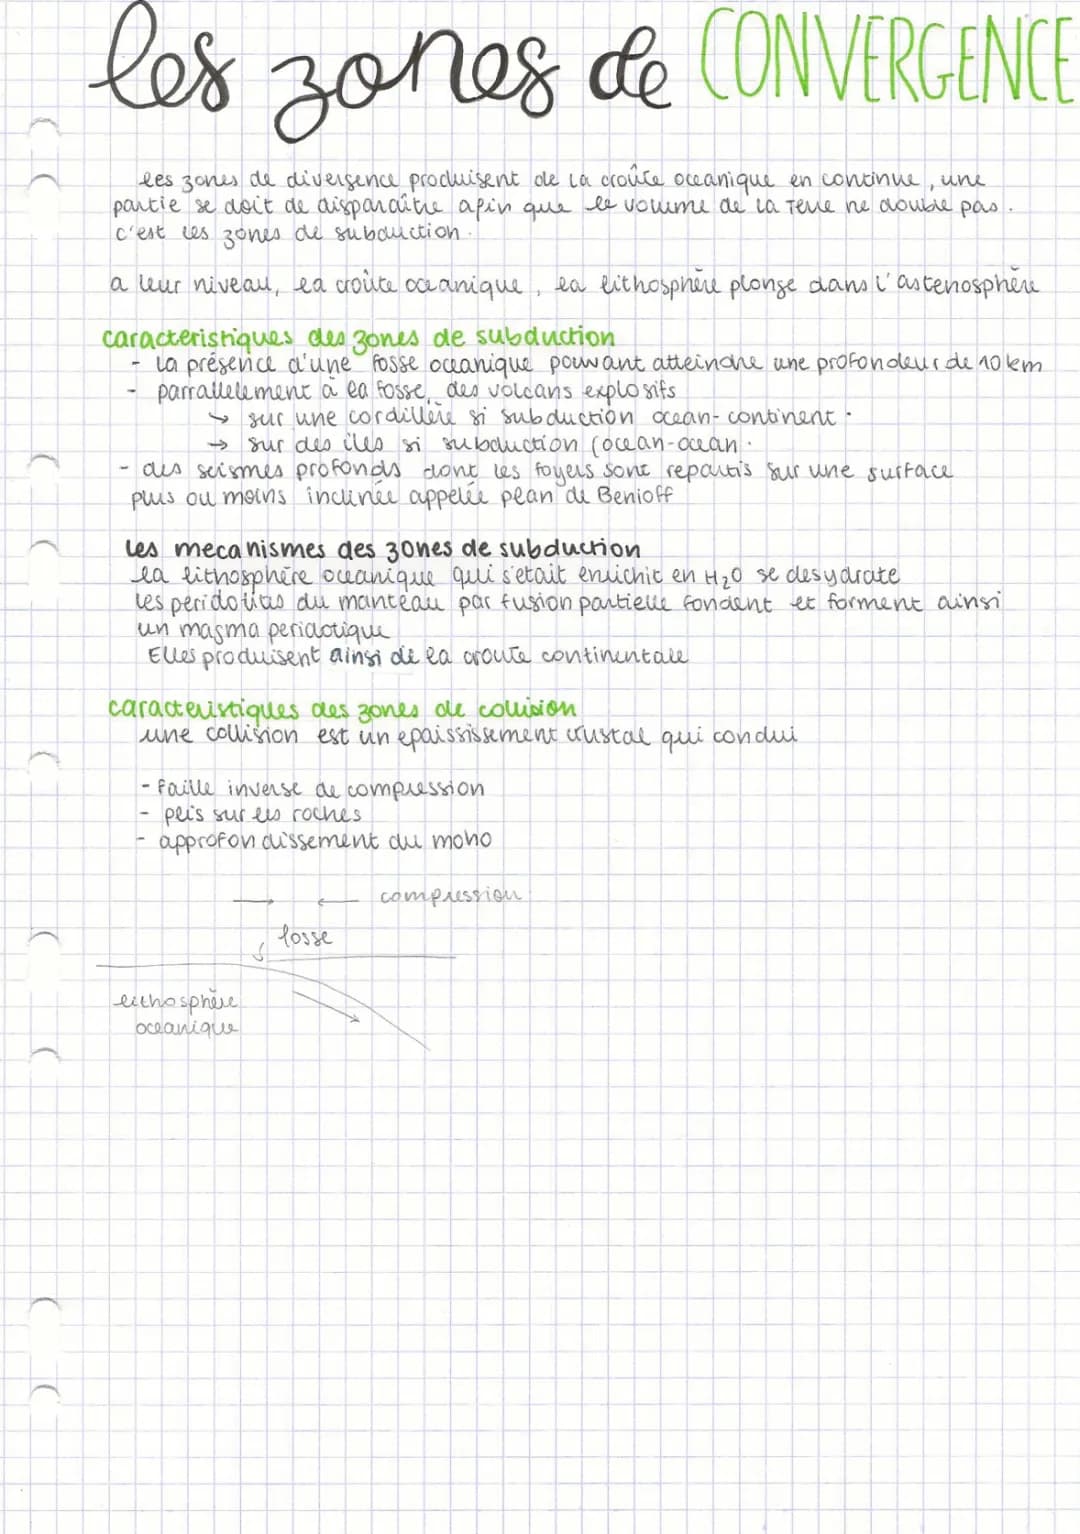 les zones de CONVERGENCE
les zones de divergence produisent de la croûte oceanique en continue, une
partie se doit de disparaûtre afin que le volume de la Terre ne double pas.
c'est les zones de subduction.
a leur niveau, la croûte oceanique, la lithosphère plonge dans l'astenosphère
caracteristiques des zones de subduction
- la présence d'une fosse oceanique pouvant atteindre une profondeur de 10 km
- parrallelement à la fosse, des volcans explosifs
→ sur une cordillère si subduction ocean-continent.
→ sur des iles si subduction (ocean-ocean.
- des seismes profonds dont les foyers sont repartis sur une surface
plus ou moins inclinée appelée plan de Benioff
les mecanismes des zones de subduction
la lithosphère oceanique qui s'etait enrichit en H₂O se desydrate
les peridotites du manteau par fusion partielle fondent et forment ainsi
un magma peridotique
Elles produisent ainsi de la croute continentale
caracteristiques des zones de collision
une collision est un epaississement crustal qui condui
- faille inverse de compression
- plis sur les roches
- approfondissement du moho
→ ← compression
fosse
lithosphère
oceanique